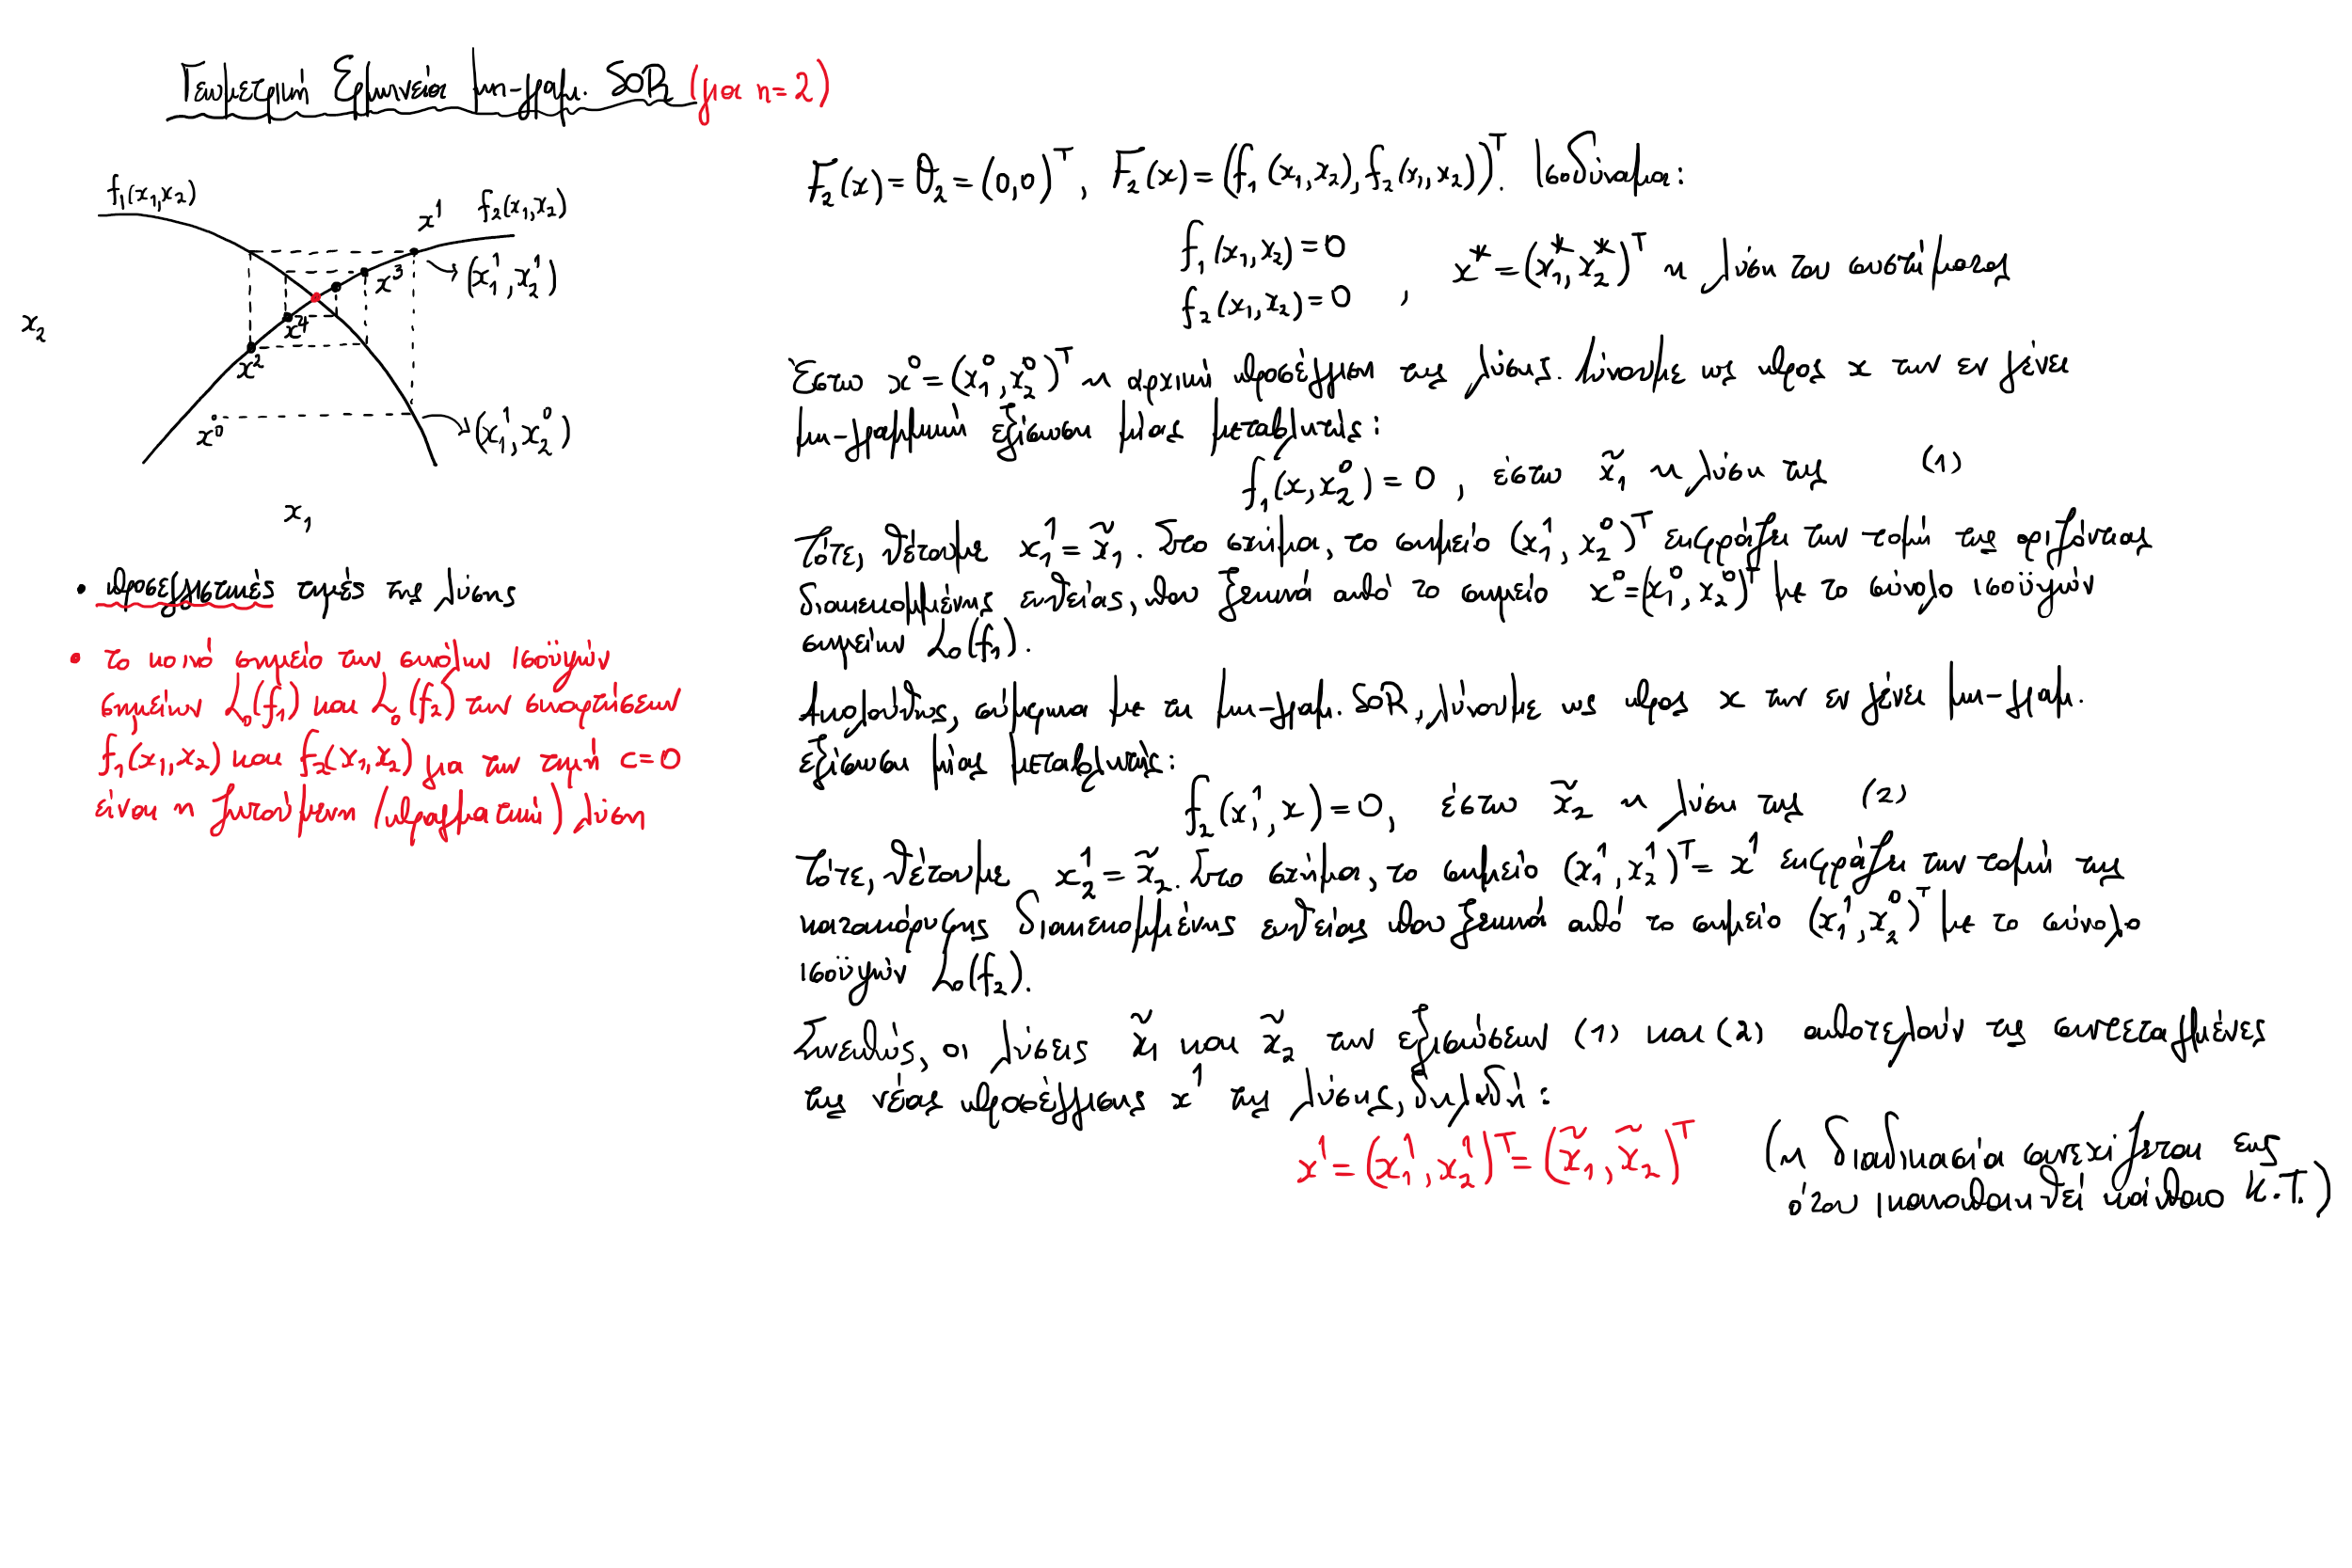 Γεωμετρική Ερμηνεία μη-γραμ. SOR (για n=2)
f₁(x₁,x₂)
x¹
f₂(x₁,x₂)
(x₁¹,x₂¹)
x³
x₂
x⁴
x²
x⁰
(x₁¹,x₂⁰)
x₁
• προσεγγιστικές τιμές της λύσης
• το κοινό σημείο των συνόλων ισοϋψών
σημείων L₀(f₁) και L₀(f₂) των συναρτήσεων
f₁(x₁,x₂) και f₂(x₁,x₂) για την τιμή c=0
είναι η ζητούμενη (πραγματική) λύση
F₂(x)=θ₂=(0,0)ᵀ, F₂(x)=(f₁(x₁,x₂),f₂(x₁,x₂))ᵀ. Ισοδύναμα:
f₁(x₁,x₂)=0
f₂(x₁,x₂)=0 , x*=(x₁*,x₂*)ᵀ η λύση του συστήματος
Έστω x⁰=(x₁⁰,x₂⁰)ᵀ η αρχική προσέγγιση της λύσης. Λύνουμε ως προς x την εν γένει
μη-γραμμική εξίσωση μίας μεταβλητής:
f₁(x,x₂⁰)=0, έστω x̃₁ η λύση της (1)
Τότε, θέτουμε x₁¹=x̃₁. Στο σχήμα, το σημείο (x₁¹,x₂⁰)ᵀ εκφράζει την τομή της οριζόντιας
διακεκομμένης ευθείας, που ξεκινά από το σημείο x⁰=(x₁⁰,x₂⁰)ᵀ με το σύνολο ισοϋψών
σημείων L₀(f₁).
Ακολούθως, σύμφωνα με τη μη-γραμ. SOR, λύνουμε ως προς x την εν γένει μη-γραμ.
εξίσωση μίας μεταβλητής:
f₂(x₁¹,x)=0, έστω x̃₂ η λύση της (2)
Τότε, θέτουμε x₂¹=x̃₂. Στο σχήμα, το σημείο (x₁¹,x₂¹)ᵀ=x¹ εκφράζει την τομή της
κατακόρυφης διακεκομμένης ευθείας που ξεκινά από το σημείο (x₁¹,x₂⁰)ᵀ με το σύνολο
ισοϋψών L₀(f₂).
Συνεπώς, οι λύσεις x̃₁ και x̃₂ των εξισώσεων (1) και (2) αποτελούν τις συντεταγμένες
της νέας προσέγγισης x¹ της λύσης, δηλαδή:
x¹=(x₁¹,x₂¹)ᵀ=(x̃₁,x̃₂)ᵀ (η διαδικασία συνεχίζεται εως
ότου ικανοποιηθεί κάποιο Κ.Τ.)